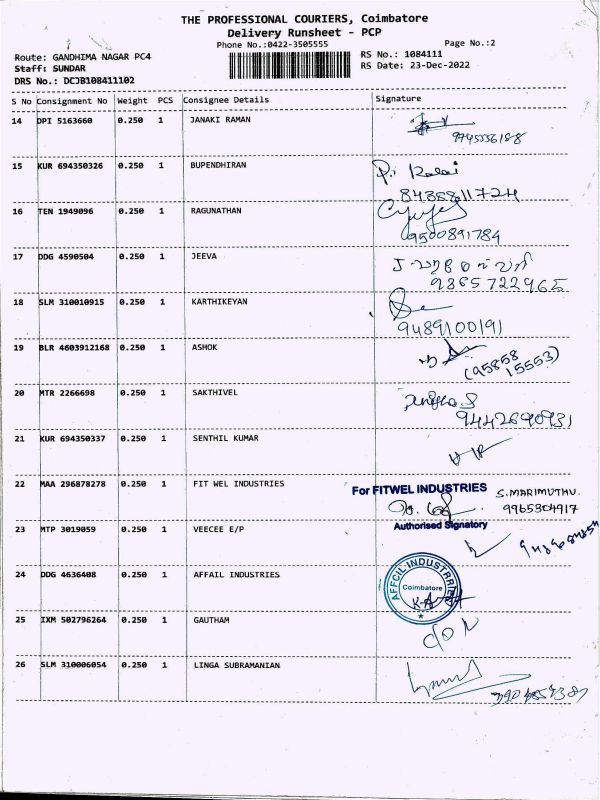 THE PROFESSIONAL COURIERS, Coimbatore
Delivery Runsheet - PCP
Phone No.:0422-3505555
Page No.:2
Route: GANDHIMA NAGAR PC4
RS No.: 1084111
Staff: SUNDAR
RS Date: 23-Dec-2022
DRS No.: DCJB108411102
S No Consignment No Weight PCS Consignee Details Signature
14 DPI 5163660 0.250 1 JANAKI RAMAN
15 KUR 694350326 0.250 1 BUPENDHIRAN
P. Kalai
16 TEN 1949096 0.250 1 RAGUNATHAN
9500891784
17 DDG 4590504 0.250 1 JEEVA
9865722965
18 SLM 310010915 0.250 1 KARTHIKEYAN
9489100191
19 BLR 4603912168 0.250 1 ASHOK
(95858
15553)
20 MTR 2266698 0.250 1 SAKTHIVEL
9442690931
21 KUR 694350337 0.250 1 SENTHIL KUMAR
22 MAA 296878278 0.250 1 FIT WEL INDUSTRIES
For FITWEL INDUSTRIES
S. MARIMUTHU.
9965304917
Authorised Signatory
23 MTP 3019059 0.250 1 VEECEE E/P
24 DDG 4636408 0.250 1 AFFAIL INDUSTRIES
AFFCIL INDUSTRRIES
Coimbatore
25 IXM 502796264 0.250 1 GAUTHAM
26 SLM 310006054 0.250 1 LINGA SUBRAMANIAN